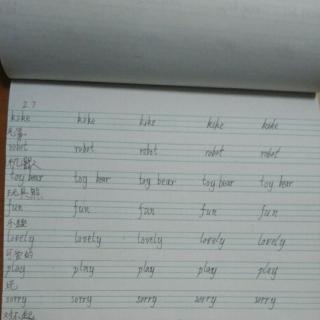 2.7
kike kike kike kike kike
风筝
robot robot robot robot robot
机器人
toy bear toy bear toy bear toy bear toy bear
玩具熊
fun fun fun fun fun
乐趣
lovely lovely lovely lovely lovely
可爱的
play play play play play
玩
sorry sorry sorry sorry sorry
对不起